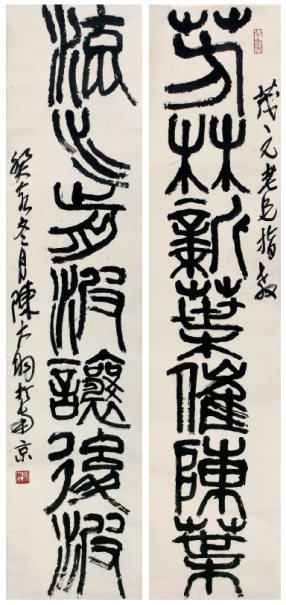 茂元老兄指教
芳林新葉催陳葉
流水前波讓後波
癸亥冬月陳大羽於南京